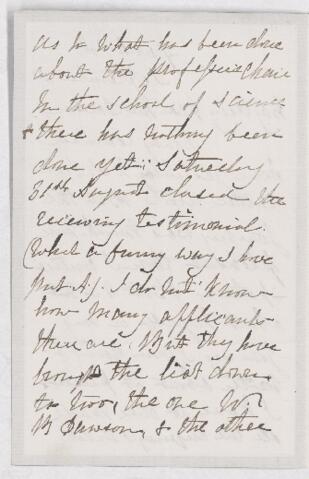 as to what has been done
about the professor chair
in the school of science
& there has nothing been
done yet; Saturday
31st August closed the
receiving testimonial.
(What a funny way I have
put it). I do not know
how many applicants
there are. But they have
brought the list down
to two, the one W.
B Dawson, & the other